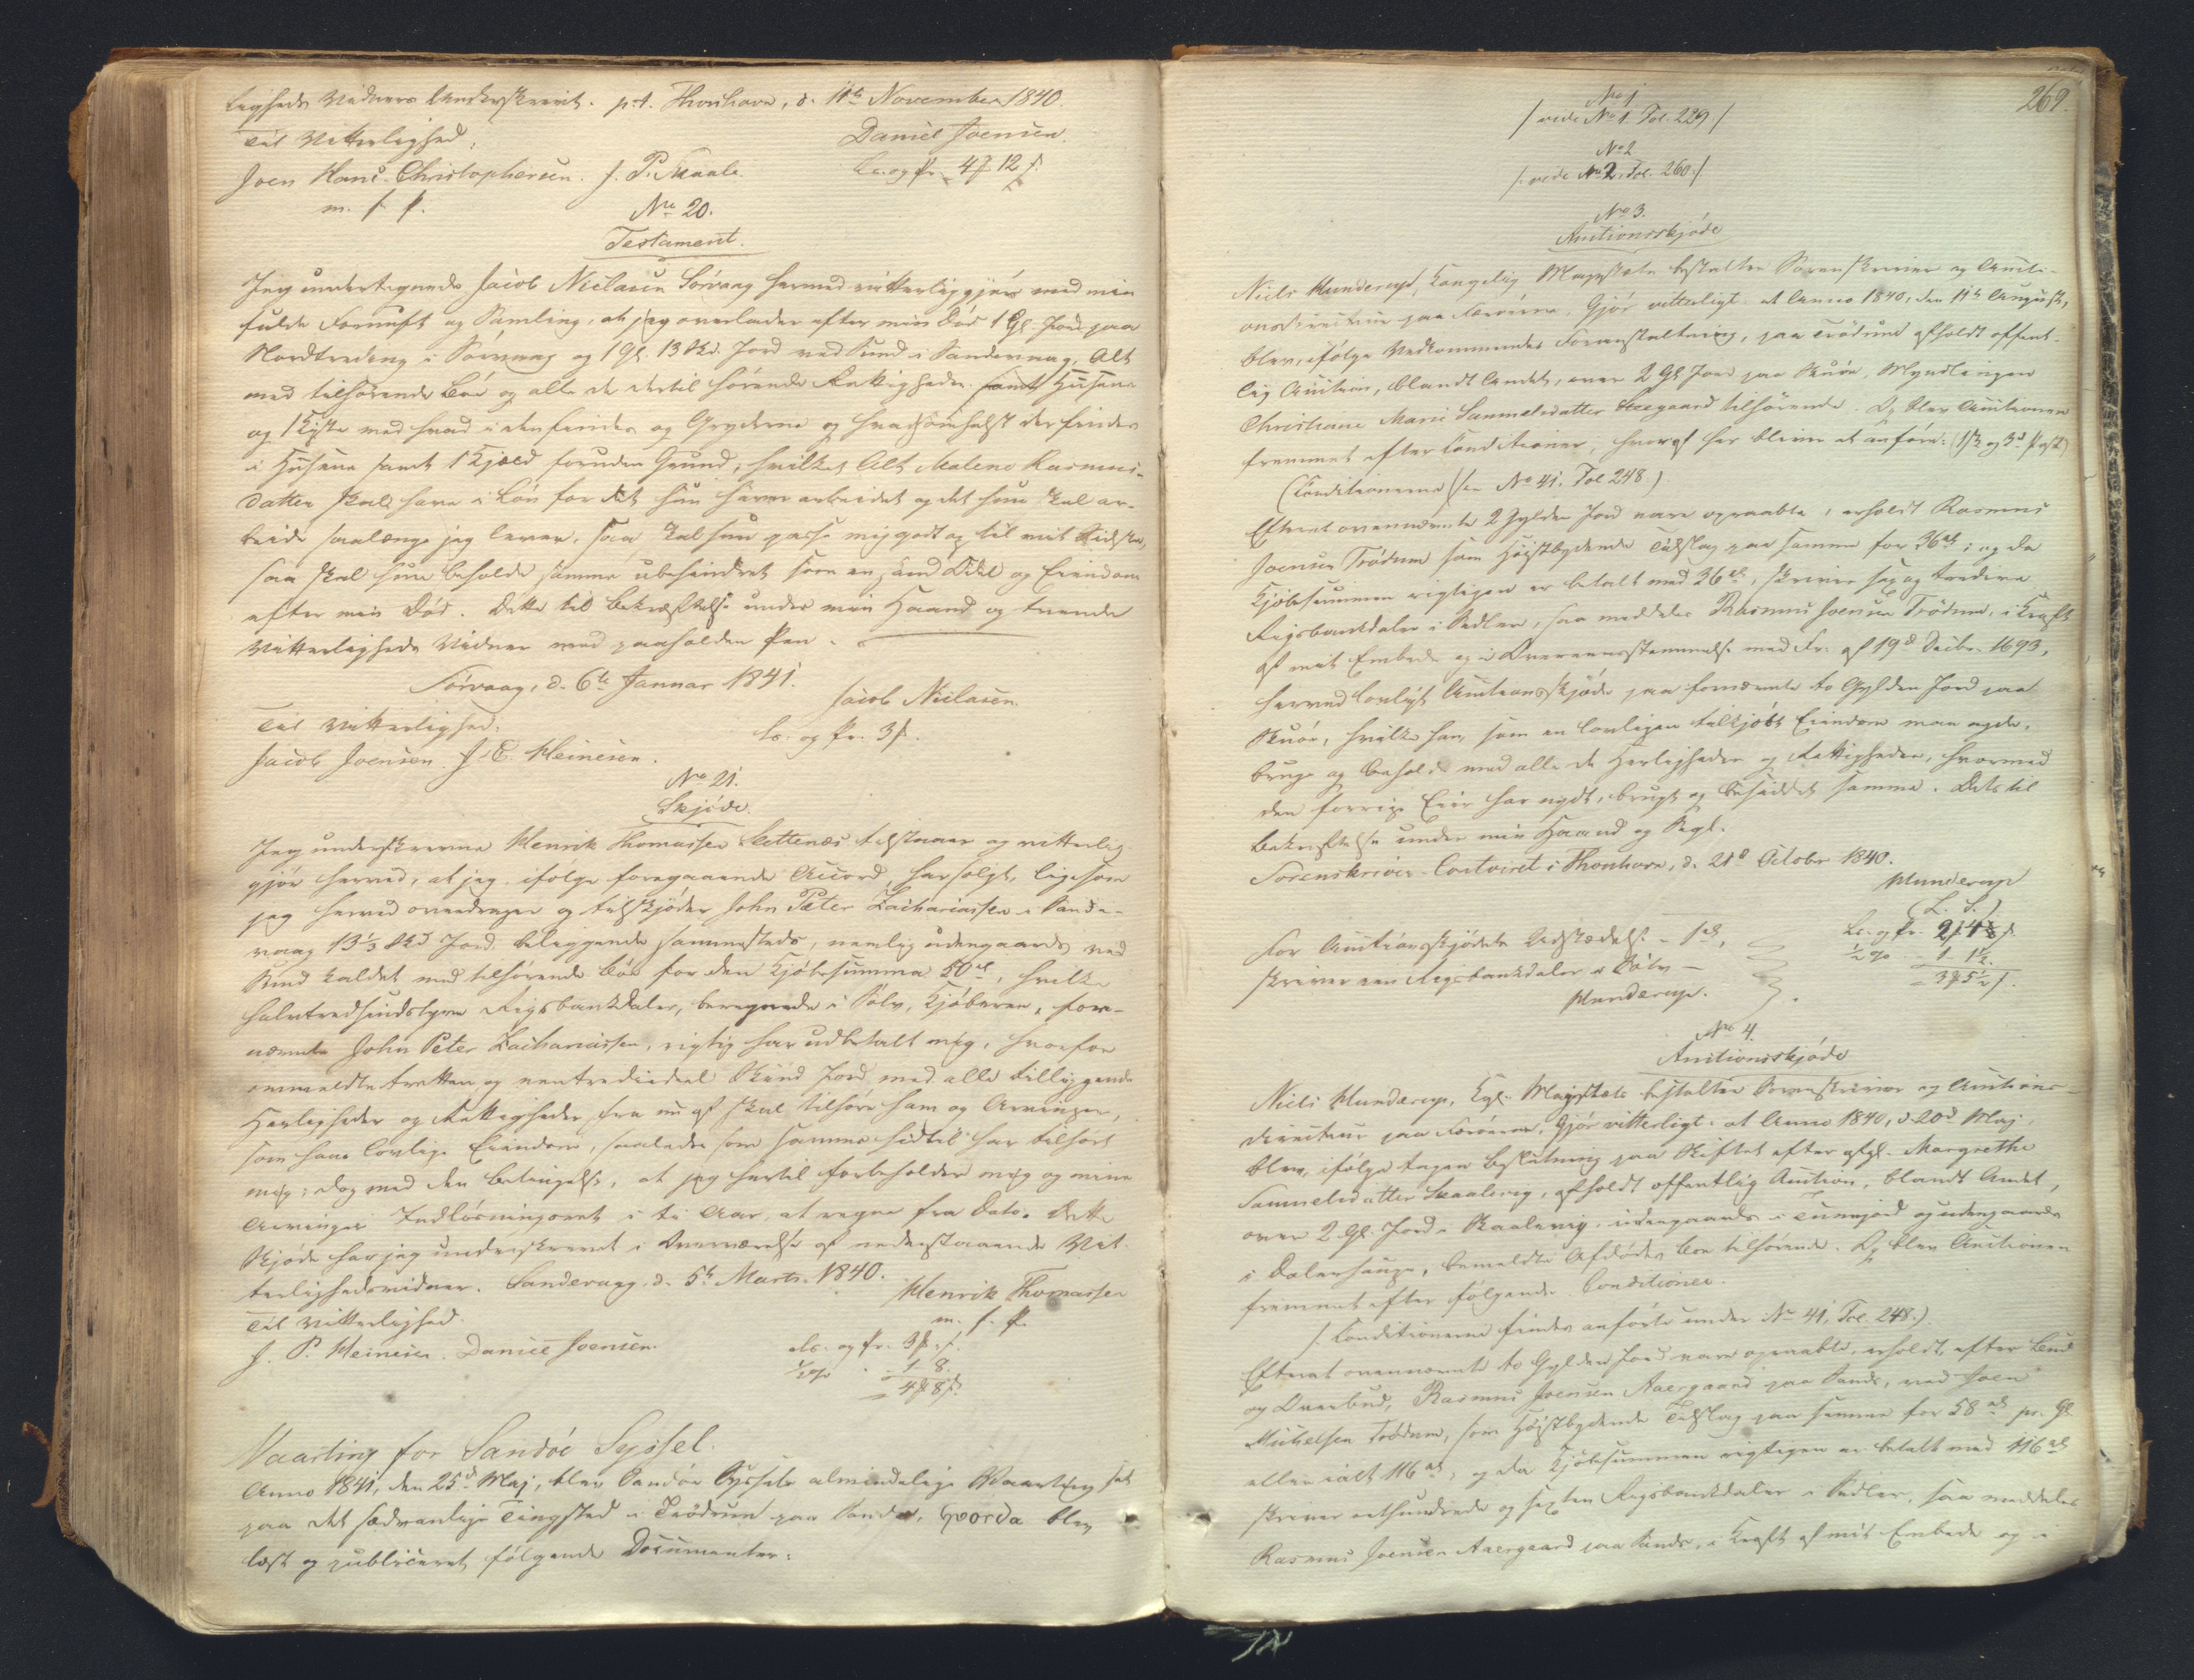 ligheds Vidners Underskrivt. p.t. Thorshavn, d. 11te November 1840.
Til Vitterlighed:
Daniel Joensen.
Joen Hans Christophersen. J. P. Skaale.
Ls. og Pr. 4 12 s.
m. f. P.
No 20.
Testament.
Jeg undertegnede Jacob Niclasen Sörvaag hermed vitterliggjör med min
fulde Fornuft og Samling, at jeg overlader efter min Död 1 Gl. Jord paa
Nordtredeng i Sörvaag og 1 Gl. 13 Skd. Jord ved Sund i Sandevaag, Alt
med tilhörende Böe og alle de dertil hörende Rettigheder samt Husene
og 1 Kiste med hvad i den findes og Gryderne og hvadsomhelst der findes
i Husene samt 1 Kjæld foruden Grund, hvilket Alt Malene Rasmus-
datter skal have i Lön for det hun haver arbeidet og det hun skal ar-
beide saalænge jeg lever. saa skal hun passe mig godt og til mit Sidste,
saa skal hun beholde samme ubehindret som en Odel og Eiendom
efter min Död. Dette til Bekræftelse under min Haand og tvende
Vitterligheds Vidner med paaholden Pen.
Sörvaag, d. 6te Januar 1841.
Jacob Niclasen.
Til Vitterlighed:
Ls. og Pr. 3 s.
Jacob Joensen. J. E. Heinesen.
No 21.
Skjöde.
Jeg underskrevne Henrik Thomassen Slettenæs tilstaaer og vitterlig
gjör herved, at jeg ifölge foregaaende Accord har solgt, ligesom
jeg herved overdrager og tilskjöder John Peter Zachariassen i Sande-
vaag 13 1/3 Skd Jord beliggende sammesteds, nemlig udengaards ved
Sund kaldet med tilhörende Böe for den Kjöbesumma 50 rd, hvilke
halvtredsindstyve Rigsbankdaler, beregnede i Sölv, Kjöberen, for-
nævnte John Peter Zachariassen, rigtig har udbetalt mig, hvorfor
ommeldte tretten og een trediedeel Skind Jord med alle tilliggende
Herligheder og Rettigheder fra nu af skal tilhöre ham og Arvinger,
som hans lovlige Eiendom, saaledes som samme hidtil har tilhört
mig; dog med den Betingelse, at jeg hertil forbeholder mig og mine
Arvinger Indlösningsret i ti Aar, at regne fra Dato. Dette
Skjöde har jeg underskrevet i Overværelse af nedenstaaende Vit-
terlighedsvidner. Sandevaag, d. 5te Marts 1840.
Henrik Thomassen
Til Vitterlighed.
m. f. P.
J. P. Heinesen. Daniel Joensen.
Ls. og Pr. 3 s.
1/2 % - 1 - 8.
4 8 s.
Vaarting for Sandöe Syssel.
Anno 1841, den 25de Maj, blev Sandöe Syssels almindelige Vaarting sat
paa det sædvanlige Tingsted i Trödum paa Sandöe, hvorda blev
læst og publiceret fölgende Documenter:
269.
No 1
/ vide No 1. Fol. 229 /
No 2
/: vide No 2. Fol. 260 :/
No 3.
Auctionsskjöde
Niels Munderup, Kongelig Majestæts bestalter Sorenskriver og Aucti-
onsdirecteur paa Færöerne, Gjör vitterligt: at Anno 1840, den 11te August,
blev, ifölge Vedkommendes Foranstaltning, paa Trödum afholdt offent-
lig Auction, blandt Andet, over 2 Gl. Jord paa Skuöe, Myndlingen
Christiane Marie Sammelsdatter Steegaard tilhörende. Og blev Auctionen
fremmet efter Conditioner, hvoraf her bliver at anföre: (1ste og 3de Post)
(Conditionerne see No 41, Fol. 248).
Efterat ovennævnte 2 Gylden Jord vare opraabte, erholdt Rasmus
Joensen Trödum som Höistbydende Tilslag paa samme for 36 rd; og da
Kjöbesummen rigtigen er betalt med 36 rd, skriver sex og tredive
Rigsbankdaler i Sedler, saa meddeles Rasmus Joensen Trödum, i Kraft
af mit Embede og i Overeensstemmelse med Fr. af 19de Decbr. 1693,
herved lovligt Auctionsskjöde paa fornævnte to Gylden Jord paa
Skuöe, hvilke han, som en lovligen tilkjöbt Eiendom maa eie,
bruge og beholde med alle de Herligheder og Rettigheder, hvormed
den forrige Eier har nydt, brugt og besiddet samme. Dets til
Bekræftelse under min Haand og Segl.
Sorenskriver-Contoiret i Thorshavn, d. 21de October 1840.
Munderup
(L. S.)
For Auctionsskjödets Udstædelse - 1 rd,
Ls. og Pr. 2 4 s.
skriver een Rigsbankdaler i Sölv -
1/2 % - 1 - 1 1/2.
Munderup.
3 5 1/2 s.
No 4.
Auctionsskjöde
Niels Munderup, Kgl. Majestæts bestalter Sorenskriver og Auctions-
directeur paa Færöerne, Gjör vitterligt: at Anno 1840, d. 20de Maj,
blev, ifölge tagen Beslutning paa Skiftet efter afgl. Margrethe
Sammelsdatter Skaalevig, afholdt offentlig Auction, blandt Andet,
over 2 Gl. Jord i Skaalevig, indengaards i Tunnjord og udengaards
i Dalenhauge, bemeldte Afdödes Boe tilhörende. Og blev Auctionen
fremmet efter fölgende Conditioner.
/: Conditionerne findes anförte under No 41, Fol. 248.)
Efterat ovennævnte to Gylden Jord vare opraabte, erholdt, efter Bud
og Overbud, Rasmus Joensen Aaergaard paa Sande, ved Joen
Michelsen Trödum, som Höistbydende Tilslag paa samme for 58 rd pr. Gl.
eller ialt 116 rd; og da Kjöbesummen rigtigen er betalt med 116 rd
skriver eethundrede og sexten Rigsbankdaler i Sedler, saa meddeles
Rasmus Joensen Aaergaard paa Sande, i Kraft af mit Embede og i